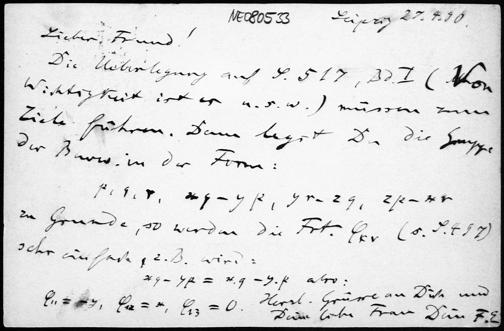 NE080533
Leipzig 27.4.90.
Lieber Freund!
Die Ueberlegung auf S. 517, Bd. I (Von
Wichtigkeit ist es u.s.w.) müssen zum
Ziele führen. Dann legst Du die Gruppe
der Beww. in der Form:
p, q, r, xq-yp, yr-zq, zp-xr
zu Grunde, so werden die Fkt. φkν (s. S. 497)
sehr einfach, z.B. wird:
xq-yp = x.q-y.p also:
φ11=-y, φ12=x, φ13=0. Herzl. Grüsse an Dich und
Deine liebe Frau Dein F.E